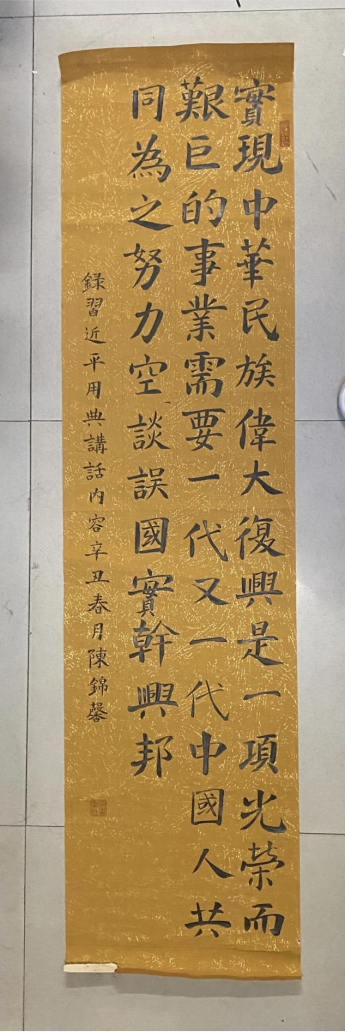 實現中華民族偉大復興是一項光榮而
艱巨的事業需要一代又一代中國人共
同為之努力空談誤國實幹興邦
録習近平用典講話内容辛丑春月陳錦馨